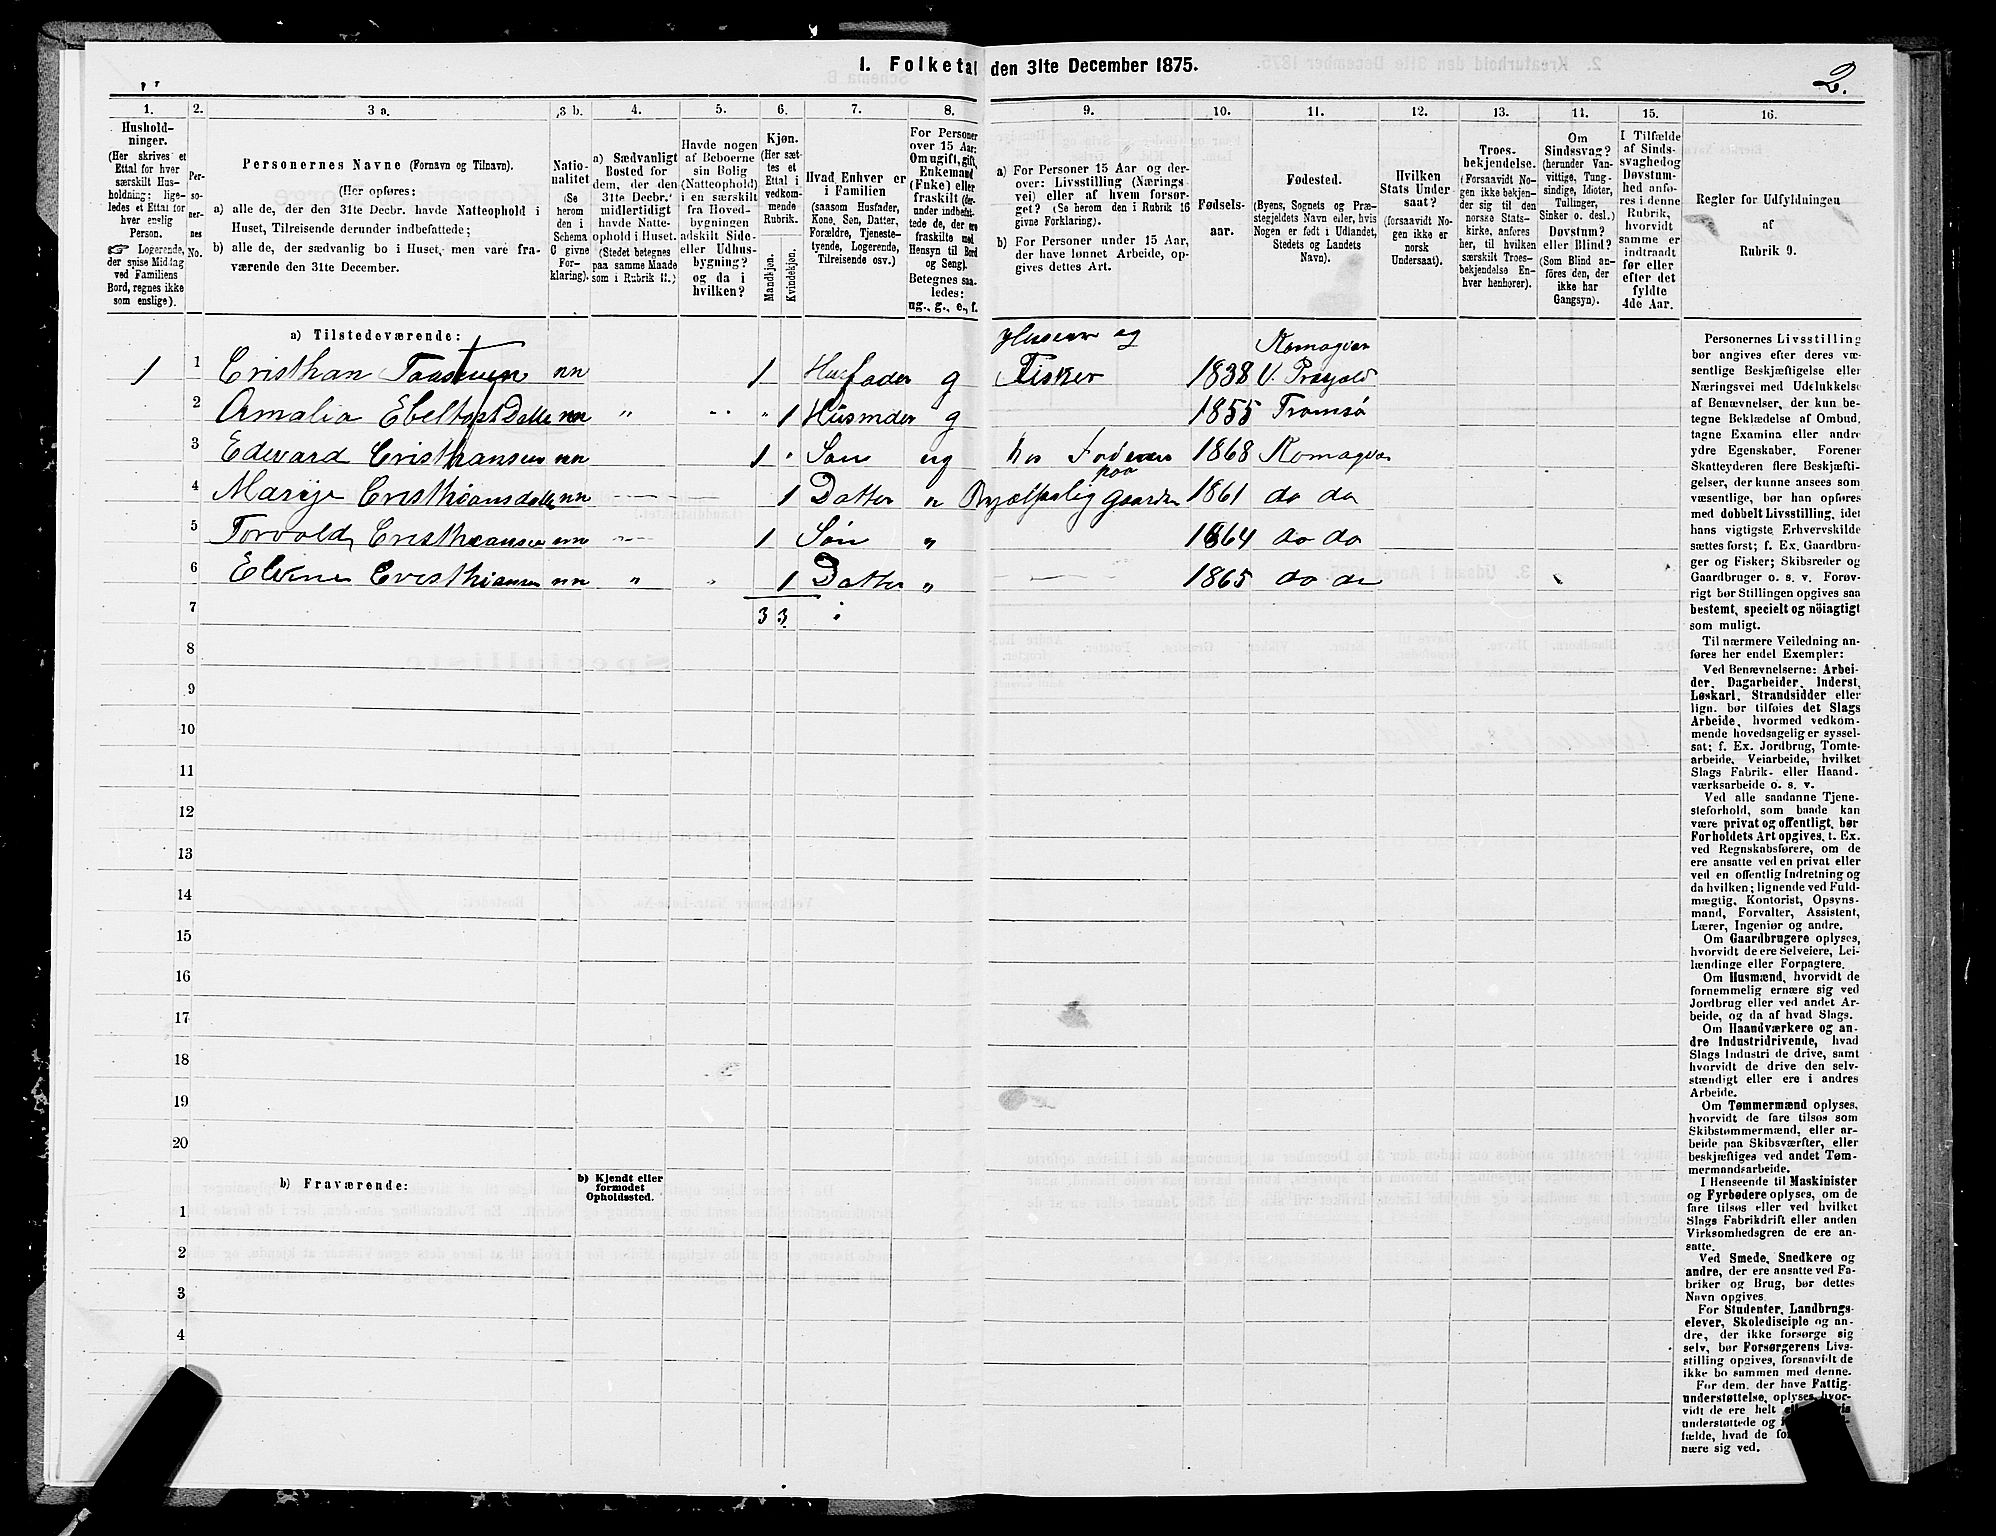 1. Folketal den 31te December 1875.
2.
1.
2.
3 a.
3 b.
4.
5.
6.
7.
8.
9.
10.
11.
12.
13.
14.
15.
16.
Hushold-
ninger.
(Her skrives et
Ettal for hver
særskilt Hus-
holdning; lige-
ledes et Ettal for
hver enslig
Person.
☞ Logerende,
der spise Middag
ved Familiens
Bord, regnes ikke
som enslige).
Per-
so-
ner-
nes
No.
Personernes Navne (Fornavn og Tilnavn).
(Her opføres:
a) alle de, der den 31te Decbr. havde Natteophold i
Huset, Tilreisende derunder indbefattede;
b) alle de, der sædvanlig bo i Huset, men vare fra-
værende den 31te December.
Natio-
nalitet
(Se
herom
den i
Schema
C givne
For-
klaring).
a) Sædvanligt
Bosted for
dem, der den
31te Decbr.
midlertidigt
havde Natte-
ophold i Huset.
(Stedet betegnes
paa samme Maade
som i Rubrik 11.)
Havde nogen
af Beboerne
sin Bolig
(Natteophold)
i en særskilt
fra Hoved-
bygningen
adskilt Side-
eller Udhus-
bygning?
og da i
hvilken?
Kjøn.
(Her sæt-
tes et
Ettal i
vedkom-
mende
Rubrik.
Mandkjøn.
Kvindekjøn.
Hvad Enhver er
i Familien
(saasom Husfader,
Kone, Søn, Datter,
Forældre, Tjeneste-
tyende, Logerende,
Tilreisende osv.)
For Personer
over 15 Aar:
Om ugift, gift,
Enkemand
(Enke) eller
fraskilt (der-
under indbefat-
tede de, der ere
fraskilte med
Hensyn til Bord
og Seng).
Betegnes saa-
ledes:
ug., g., e., f.
a) For Personer 15 Aar og der-
over: Livsstilling (Nærings
vei) eller af hvem forsør-
get? (Se herom den i Rubrik 16
givne Forklaring).
b) For Personer under 15 Aar,
der have lønnet Arbeide, op-
gives dettes Art.
Fødsels-
aar.
Fødested.
(Byens, Sognets og Præ-
stegjeldets Navn eller, hvis
Nogen er født i Udlandet,
Stedets og Landets
Navn).
Hvilken
Stats Under
saat?
(forsaavidt No-
gen ikke er
norsk
Undersaat).
Troes-
bekjendelse.
(Forsaavidt No-
gen ikke bekjen-
der sig til den
norske Stats-
kirke, anføres
her, til hvilken
særskilt Troes-
bekjendelse En-
hver henhører).
Om
Sindssvag?
(herunder Van-
vittige, Tung-
sindige, Idioter,
Tullinger,
Sinker o. desl.)
Døvstum?
eller Blind?
(Som Blind an-
føres den, der
ikke har
Gangsyn).
I Tilfælde
af Sinds-
svaghed og
Døvstum-
hed anfø-
res i denne
Rubrik,
hvorvidt
samme er
indtraadt
før eller
efter det
fyldte
4de Aar.
Regler for Udfyldningen
af
Rubrik 9.
a) Tilstedeværende:
Husem og Komagvær
1 1 Cristhan Taasteuen nn 1 Husfader g Fisker 1838 V. Præsjeld
2 Amalia Ebeltopt Datte nn " " " 1 Husmder g 1855 Tromsø
3 Edevard Cristhansen nn 1 " Søn ug hos Faderen 1868 Komagvær
paa
4 Marije Cristhiansdatte nn 1 Datter " Hjælpelig Gaarden 1861 do do
5 Torvald Cristhiansen nn 1 Søn " 1864 do do
6 Eline Cristhiansen nn " " 1 Datter " 1865 do do
7 3 3
8
9
10
11
12
13
14
15
16
17
18
19
20
b) Fraværende:
b) Kjendt eller
formodet
Opholdssted.
1
2
3
4
Personernes Livsstilling
bør angives efter deres væ-
sentlige Beskjæftigelse eller
Næringsvei med Udelukkelse
af Benævnelser, der kun be-
tegne Beklædelse af Ombud,
tagne Examina eller andre
ydre Egenskaber. Forener
Skatteyderen flere Beskjæfti-
gelser, der kunne ansees som
væsentlige, bør han opføres
med dobbelt Livsstilling, idet
hans vigtigste Erhvervskilde
sættes først; f. Ex. Gaardbru-
ger og Fisker; Skibsreder og
Gaardbruger o. s. v. Forøv-
rigt bør Stillingen opgives saa
bestemt, specielt og nöiagtigt
som muligt.
Til nærmere Veiledning an-
føres her endel Exempler:
Ved Benævnelserne: Arbei-
der, Dagarbeider, Inderst,
Løskarl, Strandsidder eller
lign. bør tilføies det Slags
Arbeide, hvormed vedkom-
mende hovedsagelig er syssel-
sat; f. Ex. Jordbrug, Tomte-
arbeide, Veiarbeide, hvilket
Slags Fabrik- eller Haand-
værksarbeide o. s. v.
Ved alle saadanne Tjene-
steforhold, som baade kan
være privat og offentligt, bør
Forholdets Art opgives, t. Ex.
ved Regnskabsførere, om de
ere ansatte ved en privat eller
ved en offentlig Indretning og
da hvilken; lignende ved Fuld-
mægtig, Kontorist, Opsyns-
mand, Forvalter, Assistent,
Lærer, Ingeniør og andre.
Om Gaardbrugere oplyses,
hvorvidt de ere Selveiere, Lei-
lændinge eller Forpagtere.
Om Husmænd, hvorvidt de
fornemmelig ernære sig ved
Jordbrug eller ved andet Ar-
beide, og da af hvad Slags.
Om Haandværkere og an-
dre Industridrivende, hvad
Slags Industri de drive, samt
hvorvidt de drive den selv-
stændigt eller ere i andres
Arbeide.
Om Tømmermænd oplyses,
hvorvidt de fare tilsøs som
Skibstømmermænd, eller ar-
beide paa Skibsværfter, eller
beskjæftiges ved andet Tøm-
mermandsarbeide.
I Henseende til Maskinister
og Fyrbødere oplyses, om de
fare tilsøs eller ved hvilket
Slags Fabrikdrift eller anden
Virksomhedsgren de ere an-
satte.
Ved Smede, Snedkere og
andre, der ere ansatte ved Fa-
briker og Brug, bør dettes
Navn opgives.
For Studenter, Landbrugs-
elever, Skoledisciple og an-
dre, der ikke forsørge sig
selv, bør Forsørgerens Livs-
stilling opgives, forsaavidt de
ikke bo sammen med denne.
For dem, der have Fattig-
understøttelse, oplyses, hvor-
vidt de ere helt
understøttede og
fælde, hvad de
nære sig ved.